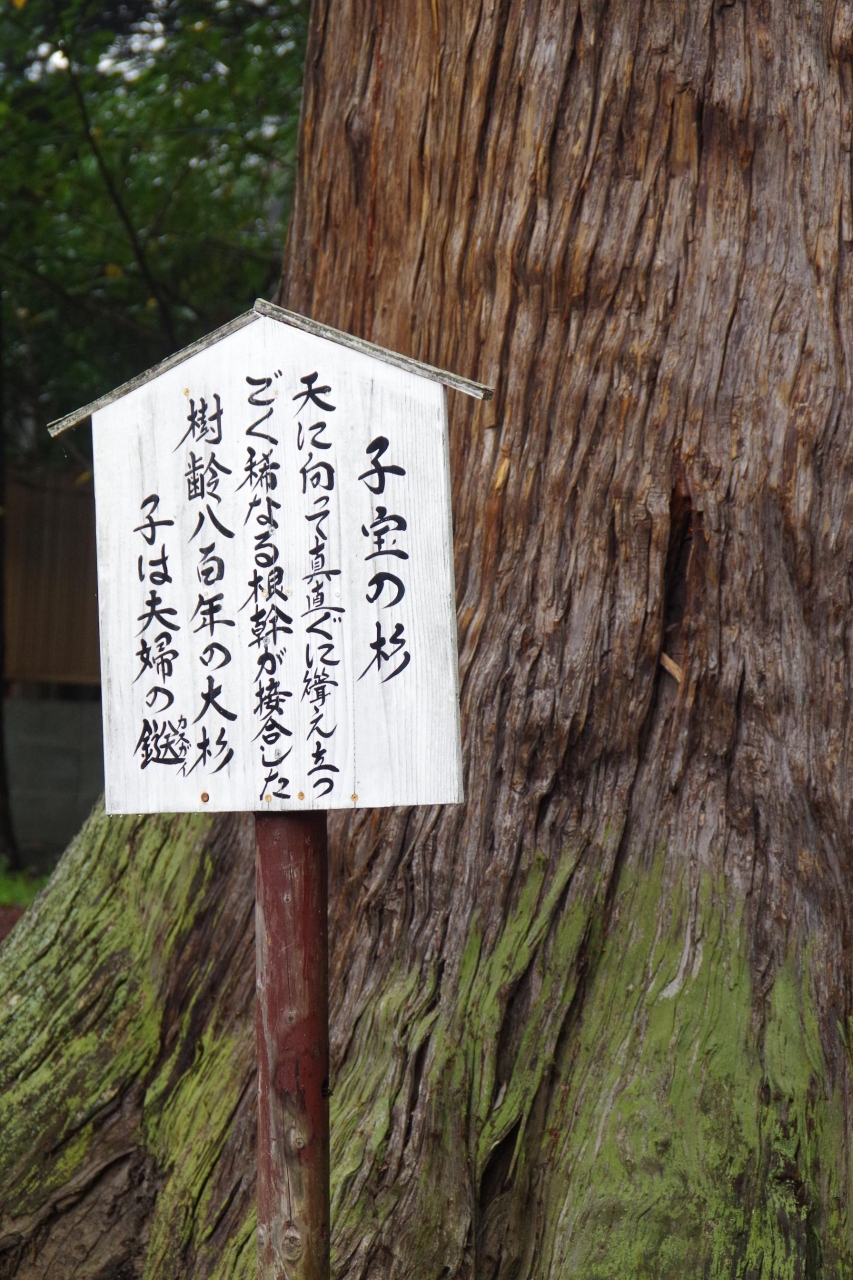 子宝の杉
天に向って真直ぐに聳え立つ
ごく稀なる根幹が接合した
樹齢八百年の大杉
子は夫婦の鎹
カスガイ